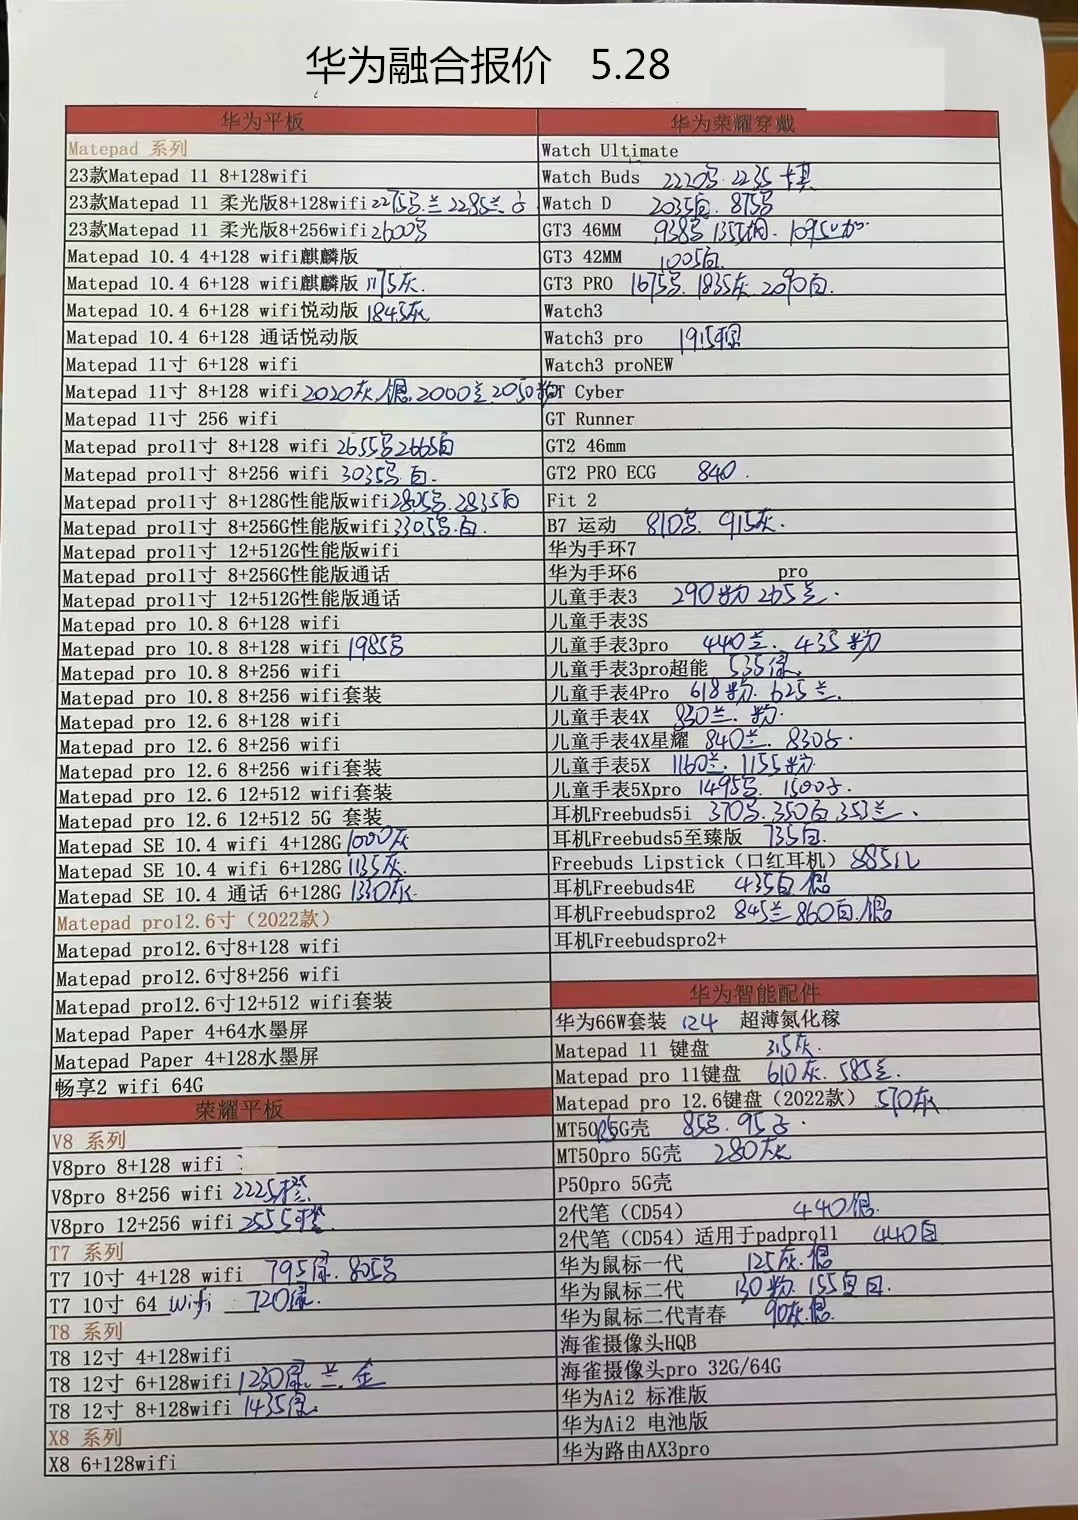 华为融合报价 5.28
华为平板
Matepad 系列
23款Matepad 11 8+128wifi
23款Matepad 11 柔光版8+128wifi 2275号.兰 2285兰.
23款Matepad 11 柔光版8+256wifi 2600号
Matepad 10.4 4+128 wifi麒麟版
Matepad 10.4 6+128 wifi麒麟版 1175灰.
Matepad 10.4 6+128 wifi悦动版 1845灰
Matepad 10.4 6+128 通话悦动版
Matepad 11寸 6+128 wifi
Matepad 11寸 8+128 wifi 2020灰.银.2000兰2050粉
Matepad 11寸 256 wifi
Matepad pro11寸 8+128 wifi 2655号2665白
Matepad pro11寸 8+256 wifi 3035号.白.
Matepad pro11寸 8+128G性能版wifi2805号.2835白
Matepad pro11寸 8+256G性能版wifi3305号.白.
Matepad pro11寸 12+512G性能版wifi
Matepad pro11寸 8+256G性能版通话
Matepad pro11寸 12+512G性能版通话
Matepad pro 10.8 6+128 wifi
Matepad pro 10.8 8+128 wifi 1985号
Matepad pro 10.8 8+256 wifi
Matepad pro 10.8 8+256 wifi套装
Matepad pro 12.6 8+128 wifi
Matepad pro 12.6 8+256 wifi
Matepad pro 12.6 8+256 wifi套装
Matepad pro 12.6 12+512 wifi套装
Matepad pro 12.6 12+512 5G 套装
Matepad SE 10.4 wifi 4+128G 1000灰
Matepad SE 10.4 wifi 6+128G 1135灰.
Matepad SE 10.4 通话 6+128G 1330灰.
Matepad pro12.6寸（2022款）
Matepad pro12.6寸8+128 wifi
Matepad pro12.6寸8+256 wifi
Matepad pro12.6寸12+512 wifi套装
Matepad Paper 4+64水墨屏
Matepad Paper 4+128水墨屏
畅享2 wifi 64G
荣耀平板
V8 系列
V8pro 8+128 wifi
V8pro 8+256 wifi 2225
V8pro 12+256 wifi 2555
T7 系列
T7 10寸 4+128 wifi 795绿.805号
T7 10寸 64 wifi 720绿.
T8 系列
T8 12寸 4+128wifi
T8 12寸 6+128wifi 1230绿.兰.金
T8 12寸 8+128wifi 1435绿.
X8 系列
X8 6+128wifi
华为荣耀穿戴
Watch Ultimate
Watch Buds 2220号.2235
Watch D 2035白.875号
GT3 46MM 938号 1355钢. 1095
GT3 42MM 1005白.
GT3 PRO 1675号.1835灰.2090白.
Watch3
Watch3 pro 1915棕
Watch3 proNEW
GT Cyber
GT Runner
GT2 46mm
GT2 PRO ECG 840.
Fit 2
B7 运动 810号. 915灰.
华为手环7
华为手环6 pro
儿童手表3 290粉 265兰.
儿童手表3S
儿童手表3pro 440兰. 435粉
儿童手表3pro超能 535绿.
儿童手表4Pro 618粉. 625兰.
儿童手表4X 830兰. 粉.
儿童手表4X星耀 840兰. 830
儿童手表5X 1160兰. 1155粉
儿童手表5Xpro 1495号. 1500
耳机Freebuds5i 370号.350白 353兰.
耳机Freebuds5至臻版 735白.
Freebuds Lipstick（口红耳机） 885
耳机Freebuds4E 435白.银
耳机Freebudspro2 845兰 860白.银
耳机Freebudspro2+
华为智能配件
华为66W套装 124 超薄氮化稼
Matepad 11 键盘 315灰.
Matepad pro 11键盘 610灰. 585兰.
Matepad pro 12.6键盘（2022款） 570灰
MT50 5G壳 85号. 95
MT50pro 5G壳 280灰
P50pro 5G壳
2代笔（CD54） 440银.
2代笔（CD54）适用于padpro11 440白
华为鼠标一代 125灰.银
华为鼠标二代 130粉. 155
华为鼠标二代青春 90灰.银.
海雀摄像头HQB
海雀摄像头pro 32G/64G
华为Ai2 标准版
华为Ai2 电池版
华为路由AX3pro